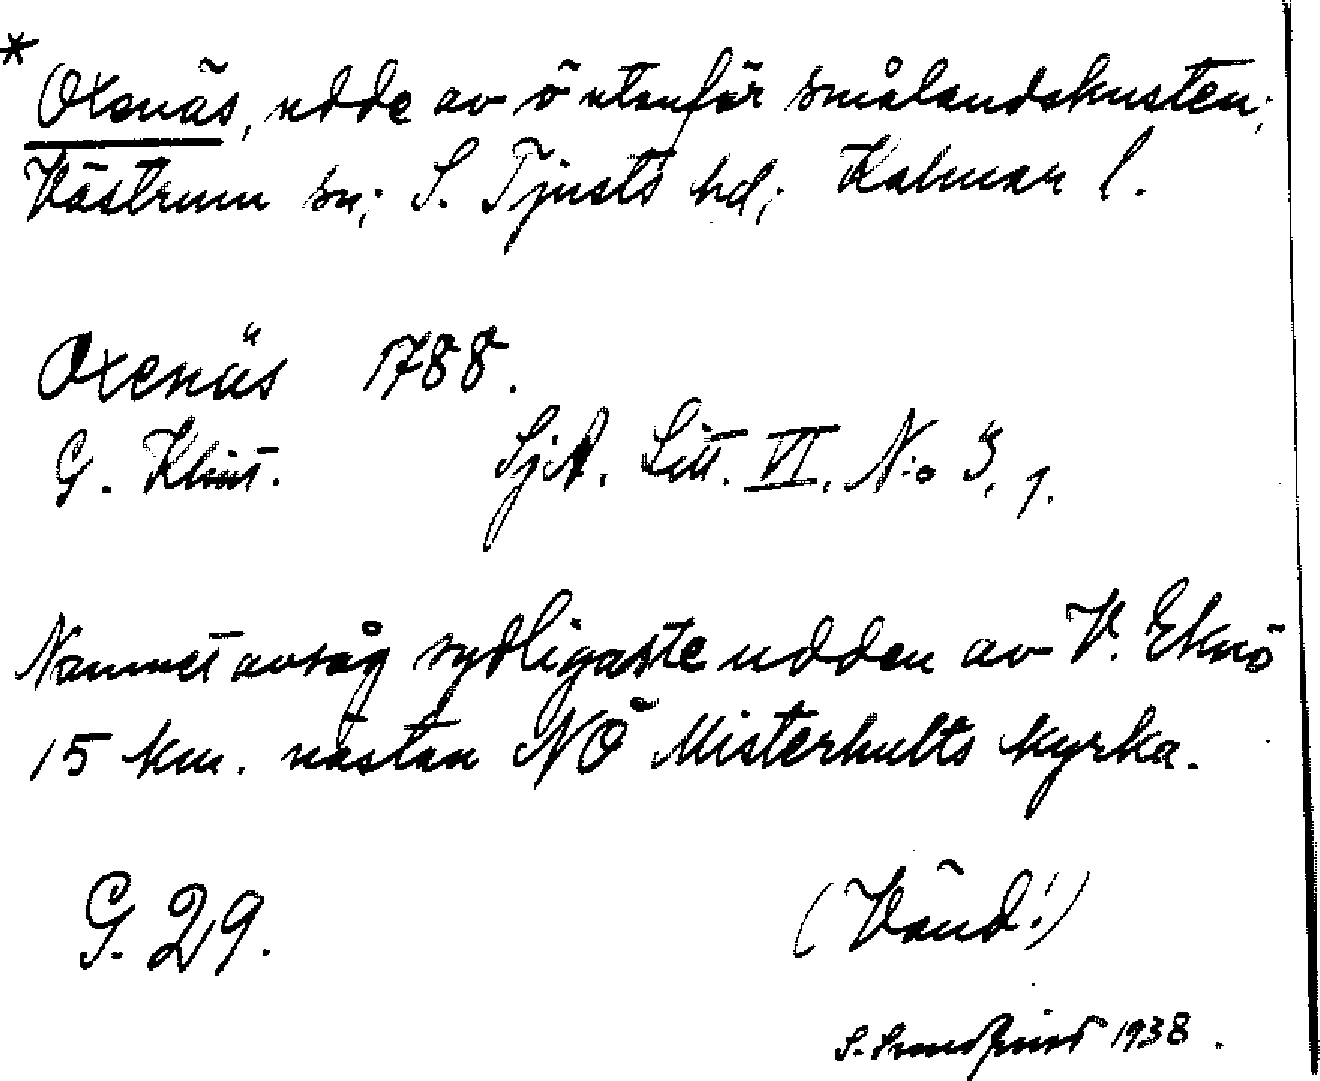 * Oxenäs, udde av ö utanför smålandskusten;
Västrum sn; S. Tjusts hd; Kalmar l.
Oxenäs 1788.
G. Klint. SjA. Litt. VI. N:o 3, 1.
Namnet avsåg sydligaste udden av V. Eknö
15 km. nästan NÖ Misterhults kyrka.
G. 29. (Vänd!)
S. 1938.